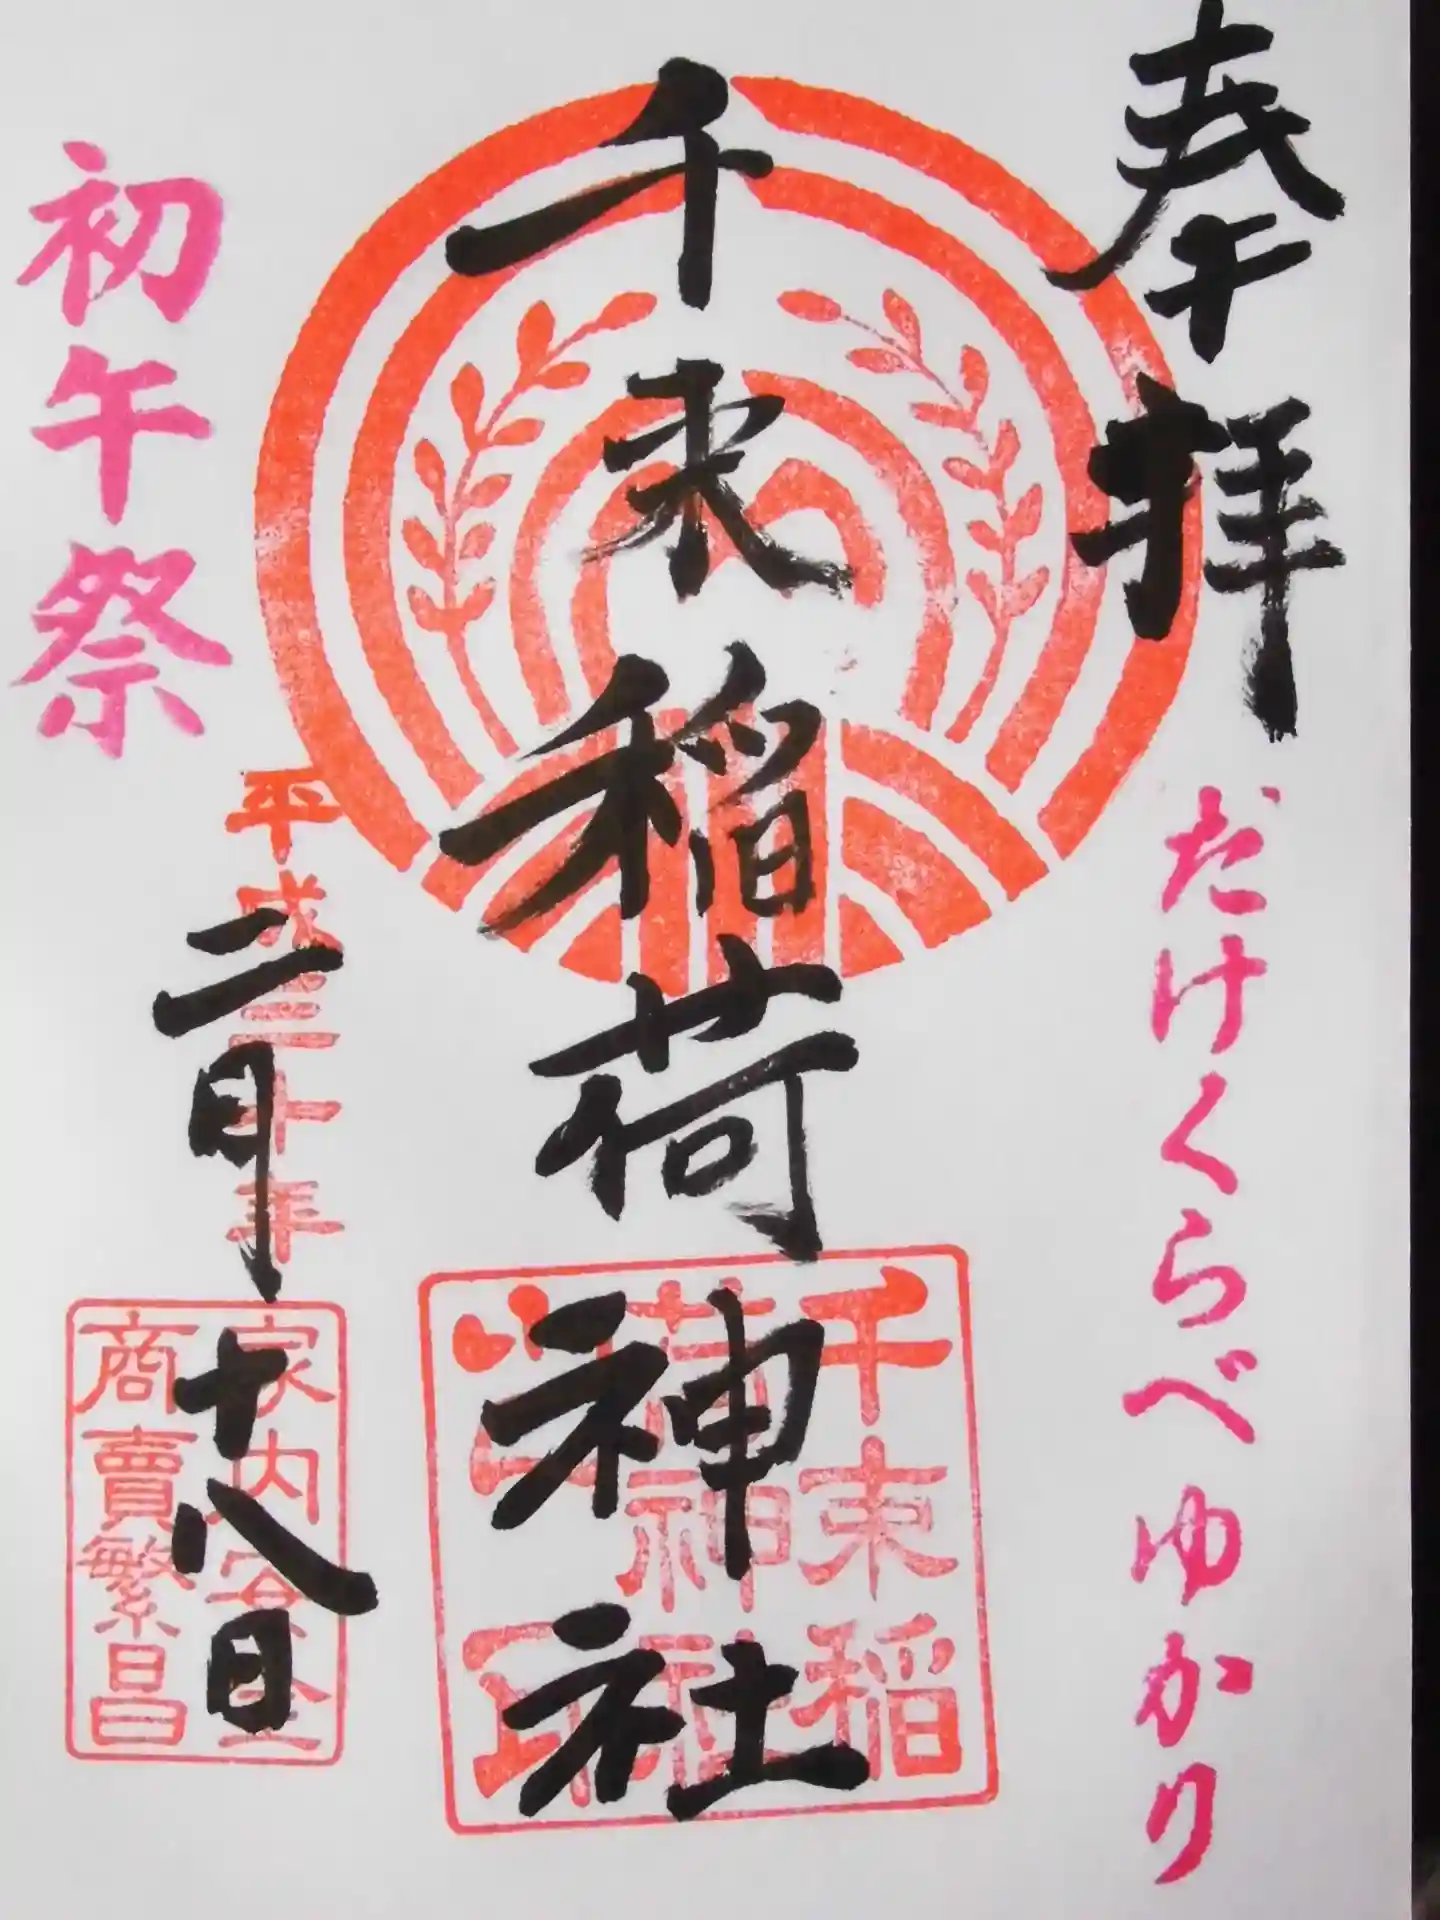 奉拝
たけくらべゆかり
千束稲荷神社
千束稲
荷神社
平成三十年
二月十八日
家内安全
商賣繁昌
初午祭